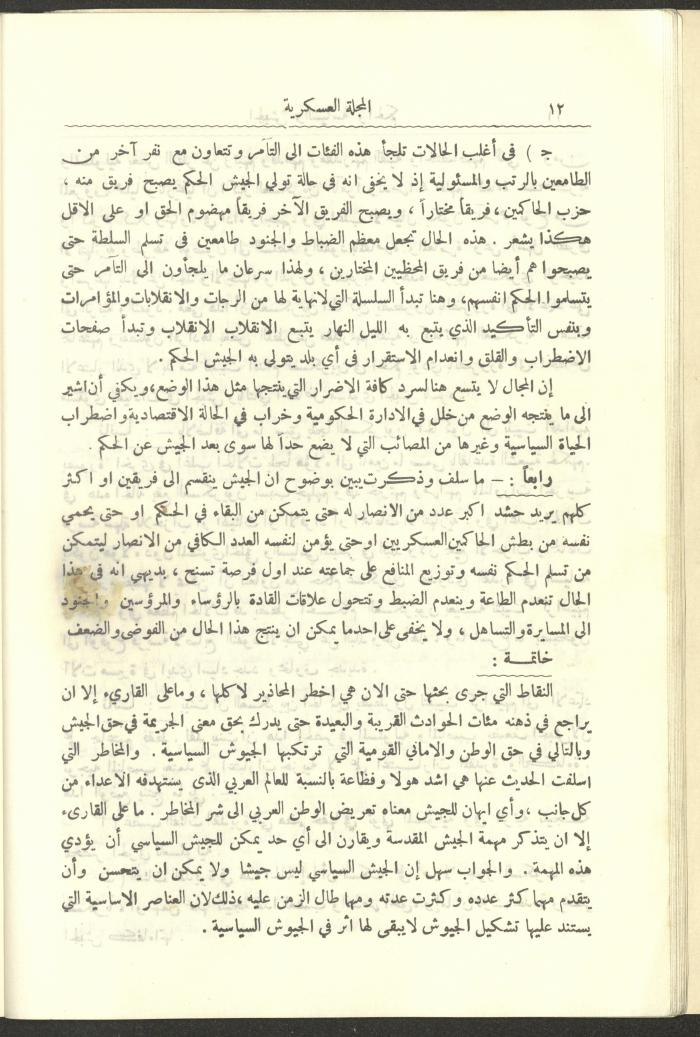 ١٢
المجلة العسكرية
ج ) في أغلب الحالات تلجأ هذه الفئات الى التآمر وتتعاون مع نفر آخر من
الطامعين بالرتب والمسئولية إذ لا يخفى انه في حالة تولي الجيش الحكم يصبح فريق منه ،
حزب الحاكمين ، فريقاً مختاراً ، ويصبح الفريق الآخر فريقاً مهضوم الحق او على الاقل
هكذا يشعر . هذه الحال تجعل معظم الضباط والجنود طامعين في تسلم السلطة حتى
يصبحوا هم أيضا من فريق المحظيين المختارين ، ولهذا سرعان ما يلجأون الى التآمر حتى
يتسلموا الحكم انفسهم، وهنا تبدأ السلسلة التي لانهاية لها من الرجات والانقلابات والمؤامرات
وبنفس التأكيد الذي يتبع به الليل النهار يتبع الانقلاب الانقلاب وتبدأ صفحات
الاضطراب والقلق وانعدام الاستقرار في أي بلد يتولى به الجيش الحكم .
إن المجال لا يتسع هنا لسرد كافة الاضرار التي ينتجها مثل هذا الوضع، ويكفي أن اشير
الى ما ينتجه الوضع من خلل في الادارة الحكومية وخراب في الحالة الاقتصادية واضطراب
الحياة السياسية وغيرها من المصائب التي لا يضع حداً لها سوى بعد الجيش عن الحكم .
رابعاً : — ما سلف وذكرت يبين بوضوح ان الجيش ينقسم الى فريقين او اكثر
كلهم يريد حشد اكبر عدد من الانصار له حتى يتمكن من البقاء في الحكم او حتى يحمي
نفسه من بطش الحاكمين العسكريين او حتى يؤمن لنفسه العدد الكافي من الانصار ليتمكن
من تسلم الحكم نفسه وتوزيع المنافع على جماعته عند اول فرصة تسنح ، بديهي انه في هذا
الحال تنعدم الطاعة وينعدم الضبط وتتحول علاقات القادة بالرؤساء والمرؤسين والجنود
الى المسايرة والتساهل ، ولا يخفى على احد ما يمكن ان ينتج هذا الحال من الفوضى والضعف
خاتمة :
النقاط التي جرى بحثها حتى الان هي اخطر المحاذير لا كلها ، وما على القاريء إلا ان
يراجع في ذهنه مئات الحوادث القريبة والبعيدة حتى يدرك بحق معنى الجريمة في حق الجيش
وبالتالي في حق الوطن والاماني القومية التي ترتكبها الجيوش السياسية . والمخاطر التي
اسلفت الحديث عنها هي اشد هولا وفظاعة بالنسبة للعالم العربي الذي يستهدفه الاعداء من
كل جانب ، وأي ايهان للجيش معناه تعريض الوطن العربي الى شر المخاطر . ما على القارىء
إلا ان يتذكر مهمة الجيش المقدسة ويقارن الى أي حد يمكن للجيش السياسي أن يؤدي
هذه المهمة . والجواب سهل إن الجيش السياسي ليس جيشا ولا يمكن ان يتحسن وأن
يتقدم مهما كثر عدده وكثرت عدته ومهما طال الزمن عليه ، ذلك لان العناصر الاساسية التي
يستند عليها تشكيل الجيوش لا يبقى لها اثر في الجيوش السياسية .